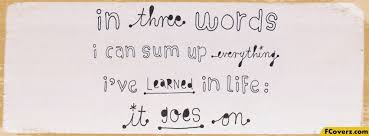 in three words
i can sum up everything
i've LEARNED in life:
it goes on
FCoverz.com